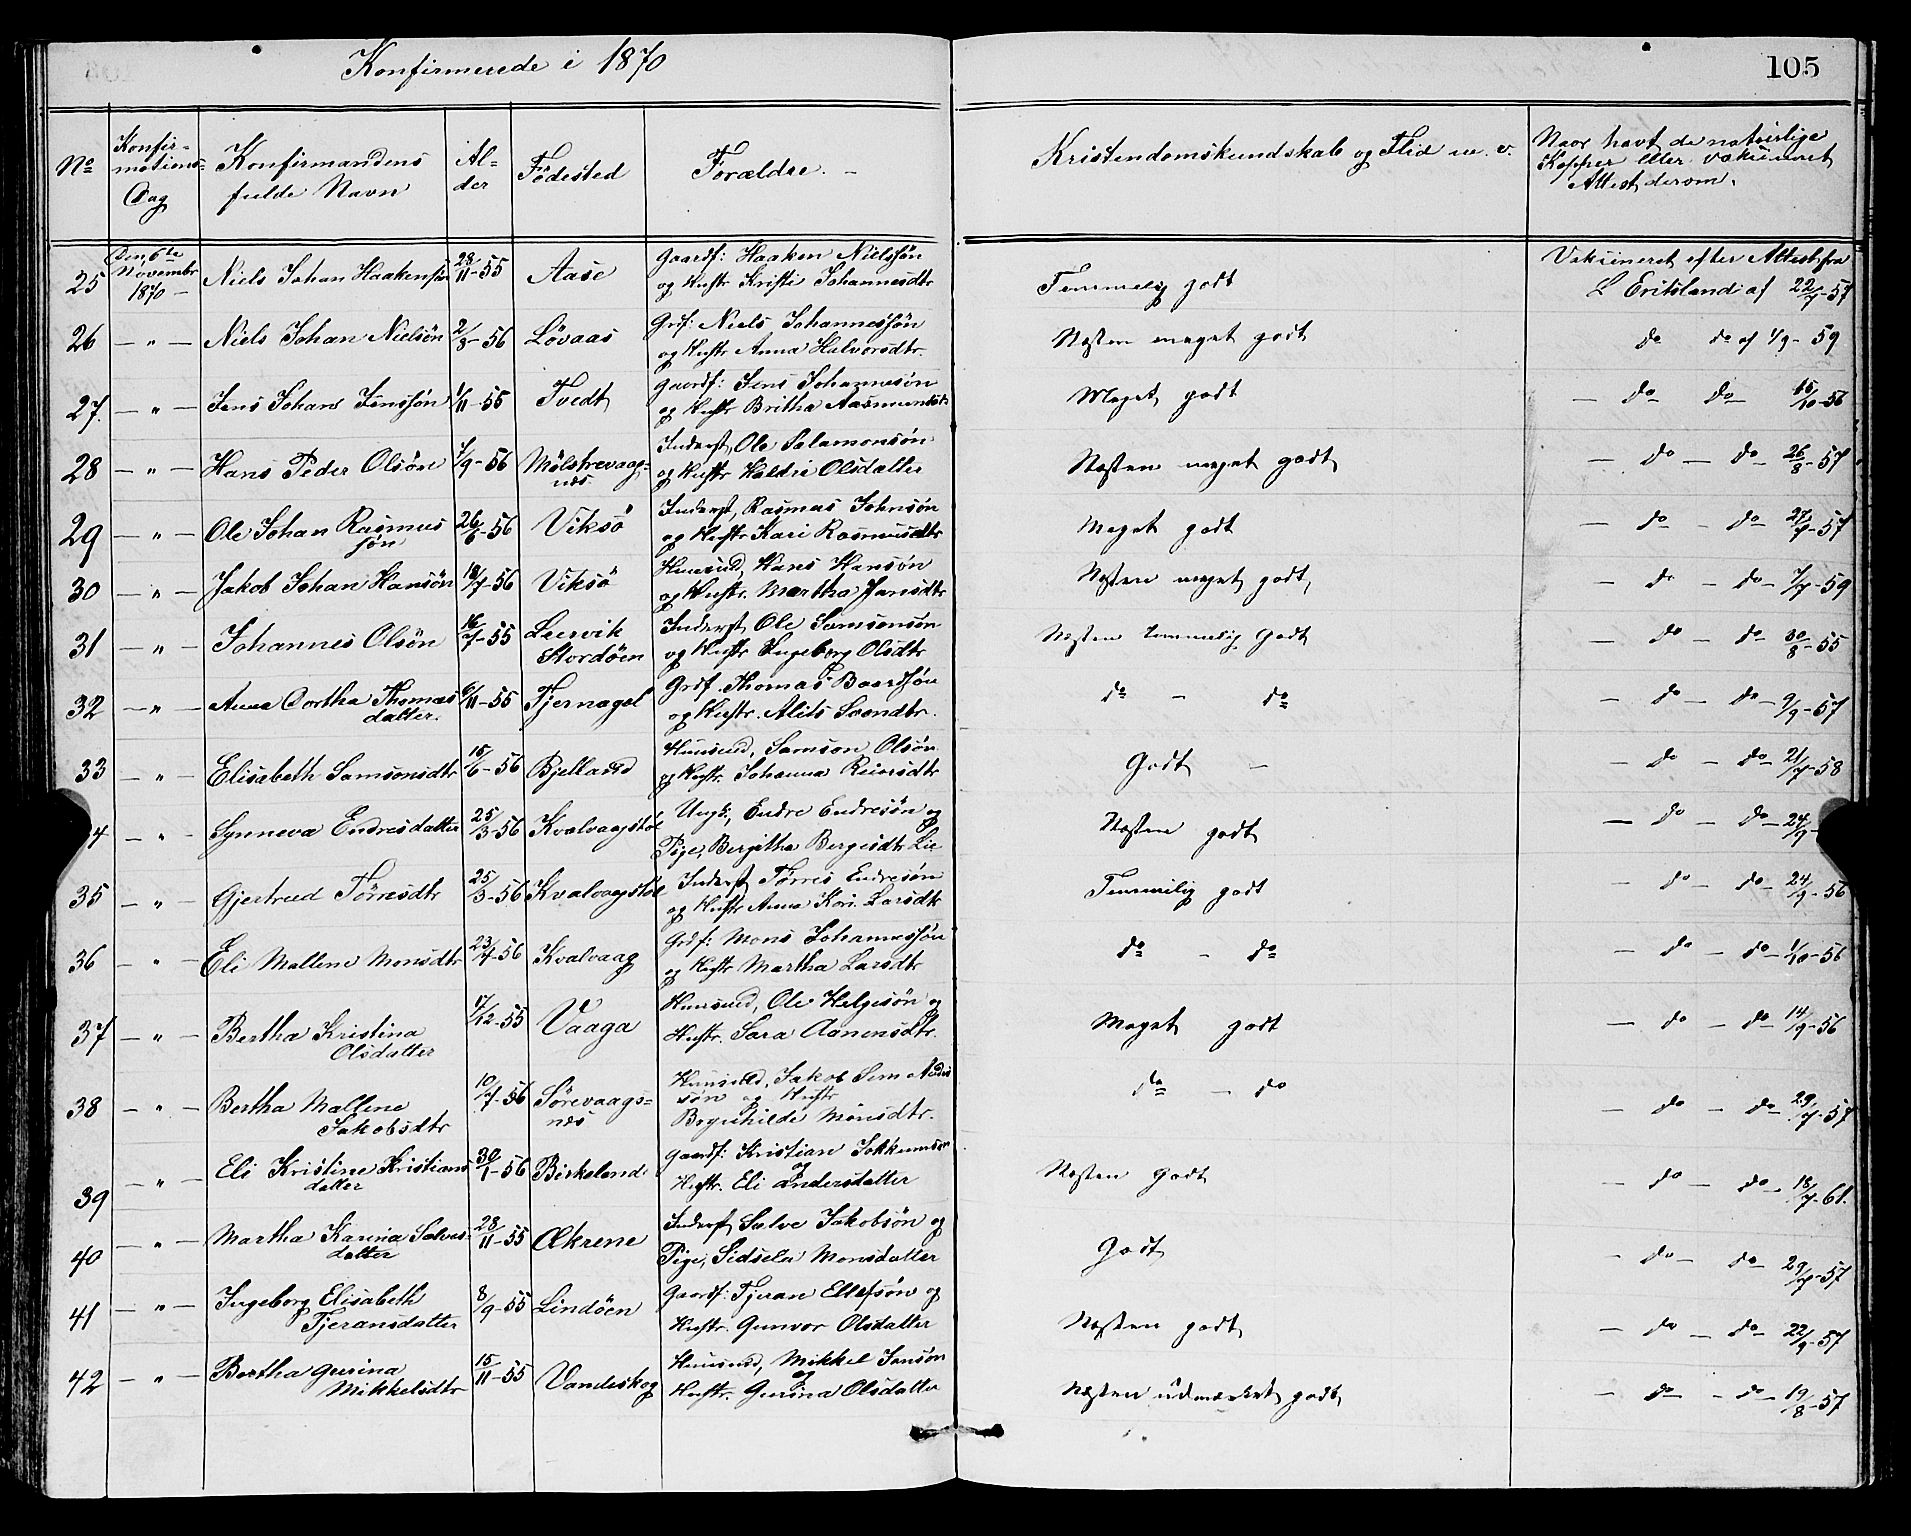 Konfirmerede i 1870
105
No Konfirmations Dag Konfirmandens fulde Navn Alder Fødested Forældre. – Kristendomskundskab og Flid m. v. Naar havt de naturlige Kopper eller vakcineret Attest derom.
Den 6te Novembr 1870 –
25 Niels Johan Haakensøn 28/11-55 Aase Gaardf: Haaken Nielssøn
og Hustr Kristi Johannesdtr Temmelig godt Vakcineret efter Attest fra
L Eritsland af 22/7-57
26 – " – Niels Johan Nielsøn 2/8-56 Løvaas Grdf: Niels Johannessøn
og Hustr Anna Halvorsdtr. Næsten meget godt do do af 1/9-59
27. – " – Jens Johans Jenssøn 1/11-55 Tvedt Gaardf: Jens Johannesøn
og Hustr Britha Aasmundsdr Meget godt – do do 15/10-56
28 – " – Hans Peder Olsøn 1/9-56 Mølstrevaag= Inderst, Ole Salamonsøn
næs og Hustr Haldri Olsdatter Næsten meget godt – do – do 26/8-57
29 – " – Ole Johan Rasmus 26/6-56 Viksø Inderst, Rasmus Johnsøn
søn og Hustr Kari Rasmusdtr Meget godt – do – do 27/7-57
30 – " – Jakob Johan Hansøn 18/7-56 Viksø Huusmd, Hans Hansøn
og Hustr. Martha Jansdtr Næsten meget godt, – do – do 7/7-59
31 – " – Johannes Olsøn 16/7-55 Leervik Inderst Ole Samsonsøn
Stordøen og Hustr Ingeborg Olsdtr Næsten temmelig Godt – do – do 30/8-55
32 – " – Anna Dortha Thomas 6/11-55 Tjernagel Grdf. Thomas Baardsøn
datter. og Hustr. Alits Svendtr. do – do – do – do 9/9-57
33 – " – Elisabeth Samsonsdtr 15/6-56 Bjelland Huusmd, Samson Olsøn
og Hustr. Johanna Reiersdtr Godt – – do – do 21/7-58
4 – " – Synneva Endresdatter 25/3-56 Kvalvaagstøl Ungk:, Endre Endresøn og
Pige, Bergitha Bergesdtr Lie Næsten godt – do – do 24/9-
35 – " – Gjertrud Tørresdtr 25/3-56 Kvalvaagstøl Inderst Tørris Endresøn
og Hustr Anna Kari Larsdtr Temmelig godt – do – do 24/9-56
36 – " – Eli Mallene Monsdtr 23/4-56 Kvalvaag Grdf: Mons Johannessøn
og Hustr Martha Larsdtr do – do – do – do 1/10-56
37 – " – Bertha Kristina 17/12-55 Vaaga Huusmd, Ole Helgesøn og
Olsdatter Hustr. Sara Aanensdtr. Meget godt – do – do 14/9-56
38 – " – Bertha Mallene 10/7-56 Sørevaags= Huusmd, Jakob Sem
Jakobsdtr næs søn og Hustr
Brynhilde Monsdtr. do – do – do – do 29/7-57
39 – " – Eli Kristine Kristians 30/1-56 Birkeland Gaardf: Kristian
datter og
Hustr. Eli Andersdatter Næsten Godt – do – do 18/7-61.
40 – " – Martha Karina Salves= 28/11-55 Økrene Inderst Salve Jakobsøn og
datter Pige, Sidsela Monsdatter Godt – do – do 29/7-57
41 – " – Ingeborg Elisabeth 8/9-55 Lindøen Gaardf: Tjeran Ellefsøn og
Tjeransdatter Hustr. Gunvor Olsdatter Næsten godt – do – do 22/9-57
42 – " – Bertha Gurina 15/11-55 Vandeskog Huusmd, Mikkel Jansøn
Mikkelsdtr og
Hustr. Gurina Olsdatter Næsten udmærket godt – do – do 19/8-57